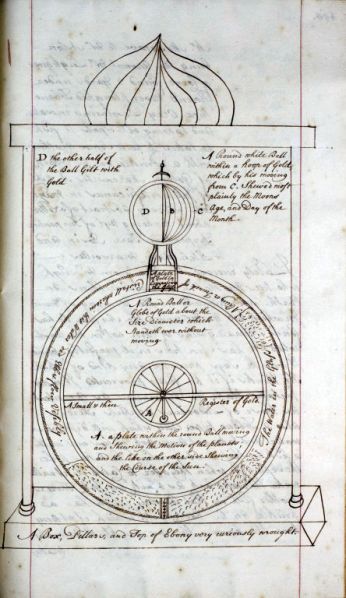 D the other half of
the Ball Gilt with
Gold
A Round white Ball
within a hoop of Gold,
which by his moving
from C. Shewed most
plainly the Moons
Age, and Day of the
Month
D
B
C
A plate
of Gold
A Round Ball or
Globe of Gold about the
Size Diameter which
standeth ever without
moving
The Water in the Glass
A Small & thin
Register of Gold
A
A. a plate within the round Ball moving
and Shewing the Motions of the planets
and the like on the other side Shewing
the Course of the Sun.
A Box, Pillars, and Top of Ebony very curiously wrought.